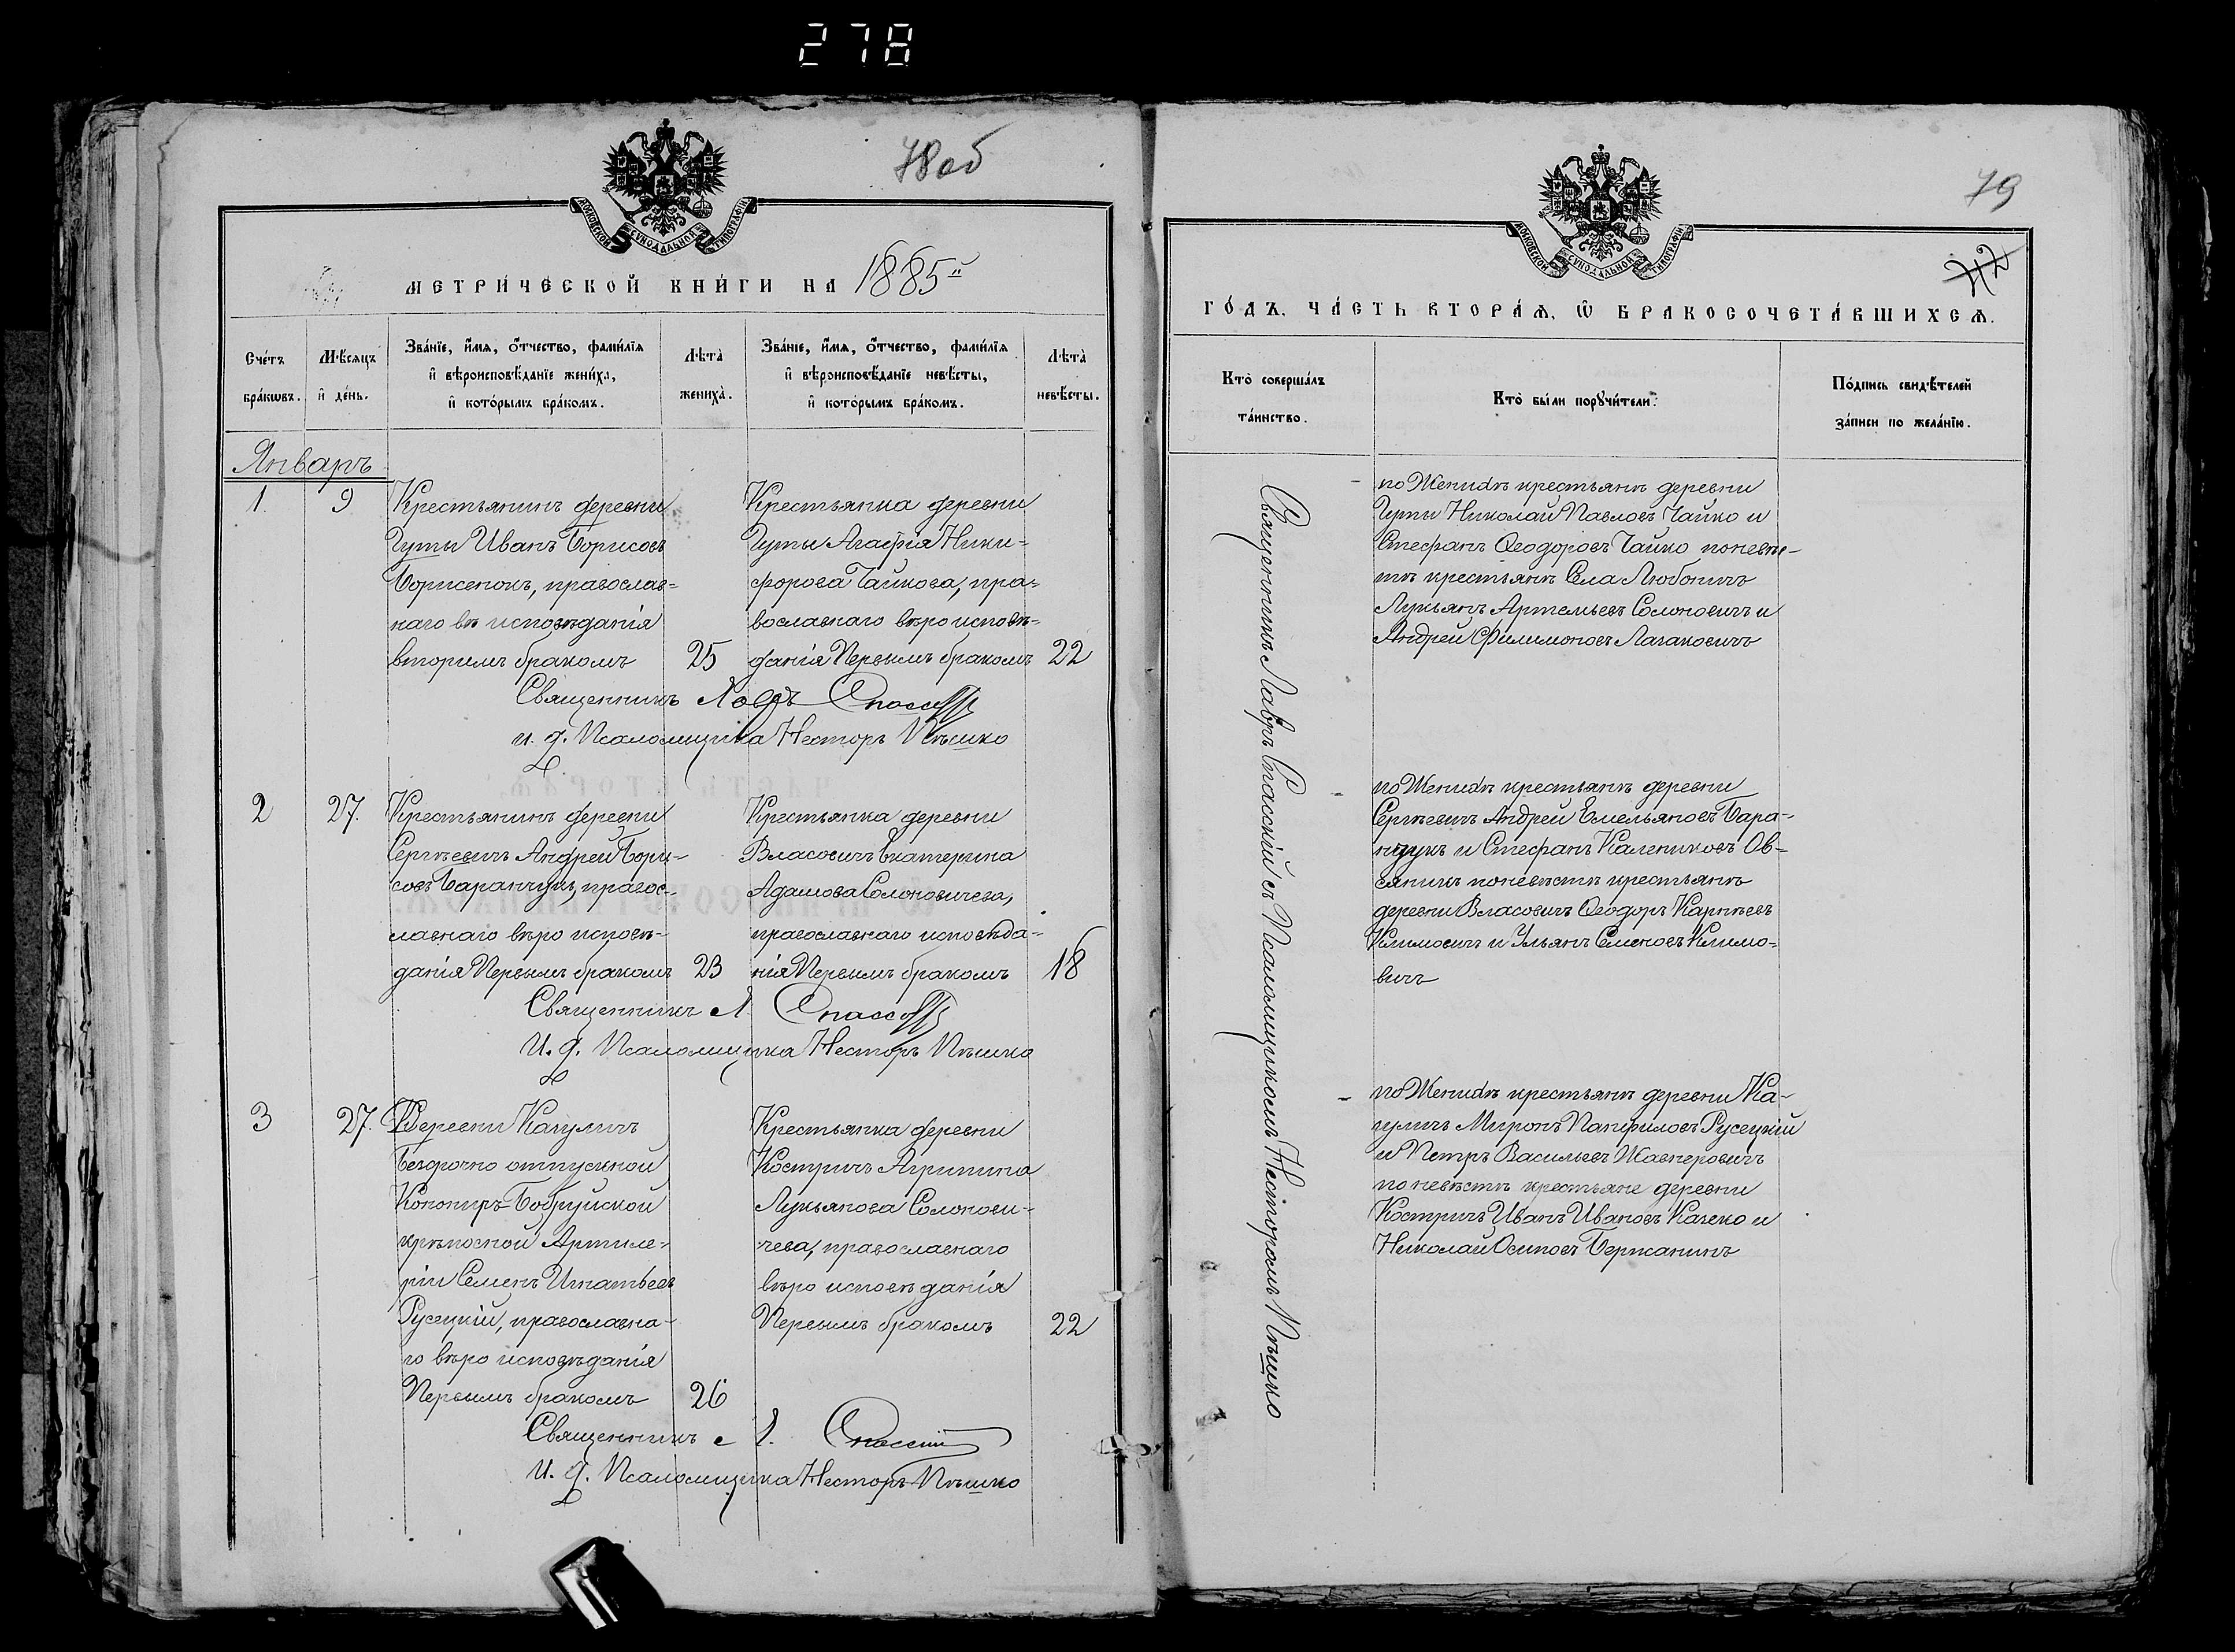 278
78об
МОСКОВСКОЙ СУНОДАЛЬНОЙ ТИПОГРАФІИ
МЕТРИ́ЧЕСКОЙ КНИ́ГИ НА 1885й
Сче́тъ бра́кѡвъ.
Мѣ́сѧцъ и҆ де́нь.
Зва́нїе, и҆́мѧ, ѻ҆́тчество, фами́лїѧ
и҆ вѣроисповѣ́данїе жениха̀,
и҆ кото́рымъ бра́комъ.
Лѣта̀ жениха̀.
Зва́нїе, и҆́мѧ, ѻ҆́тчество, фами́лїѧ
и҆ вѣроисповѣ́данїе невѣ́сты,
и҆ кото́рымъ бра́комъ.
Лѣта̀ невѣ́сты.
Январь
1.
9
Крестьянинъ деревни
Гуты Иванъ Борисовъ
Борисенокъ, православ=
наго вѣ исповѣданія
вторымъ бракомъ
25
Крестьянка деревни
Гуты Агафія Ники=
форова Чайкова, пра=
вославнаго вѣро исповѣ=
данія Первымъ бракомъ
22
Священникъ Лавръ Спасскій
и. д. Псаломщика Несторъ Пѣшко
2
27.
Крестьянинъ деревни
Сергѣевичъ Андрей Бори-
совъ Баранчукъ, правос-
лавнаго вѣро исповѣ-
данія Первымъ бракомъ
23
Крестьянка деревни
Власовичъ Екатерина
Адамова Солоновичева,
православнаго исповѣда=
нія Первымъ бракомъ
18
Священникъ Л. Спасскій
И. д. Псаломщика Несторъ Пѣшко
3
27.
Деревни Качуличъ
Безсрочно отпускной
Кононир Бобруйской
крѣпосной Артиле-
ріи Семенъ Игнатьевъ
Русецкій, православна-
го вѣро исповѣданія
Первымъ бракомъ
26
Крестьянка деревни
Костричъ Агрипина
Лукьянова Солонови-
чева, православнаго
вѣро исповѣданія
Первымъ бракомъ
22
Священникъ Л. Спасскій
И. д. Псаломщика Несторъ Пѣшко
79
42
МОСКОВСКОЙ СУНОДАЛЬНОЙ ТИПОГРАФІИ
ГО́ДЪ, ЧА́СТЬ ВТОРА́Ѧ, Ѡ҆ БРАКОСОЧЕТА́ВШИХСѦ.
Кто̀ соверша́лъ
та́инство.
Кто̀ бы́ли порꙋчи́тели.
По́дпись свидѣ́телей
за́писи по жела́нїю.
Священникъ Лавръ Спасскій съ Псаломщикомъ Несторомъ Пѣшко
по Женихѣ крестьянѣ деревни
Гуты Николай Павловъ Чайко и
Стефанъ Ѳеодоровъ Чайко поневѣс-
тѣ крестьянѣ Села Любоничъ
Лукьянъ Артемьевъ Солоновичъ и
Андрей Филимоновъ Лагаковичъ
по Женихѣ крестьянѣ деревни
Сергѣевичъ Андрей Емельяновъ Бара-
нчукъ и Стефанъ Калениковъ Ов-
сяникъ поневѣстѣ крестьянѣ
деревни Власовичъ Ѳеодоръ Карпѣевъ
Климовичъ и Ульянъ Семеновъ Климо-
вичъ
по Женихѣ крестьянѣ деревни Ка-
чуличъ Миронъ Панфиловъ Русецкій
и Петръ Васильевъ Жавнеровичъ
по невѣстѣ крестьяне деревни
Костричъ Иванъ Ивановъ Казеко и
Николай Осиповъ Бержанинъ